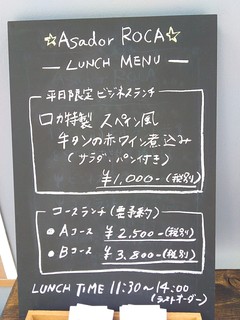 ☆Asador ROCA☆
— LUNCH MENU —
平日限定 ビジネスランチ
ロカ特製 スペイン風
牛タンの赤ワイン煮込み
(サラダ、パン付き)
¥1,000-(税別)
コースランチ(要予約)
• Aコース ¥2,500-(税別)
• Bコース ¥3,800-(税別)
LUNCH TIME 11:30~14:00
(ラストオーダー)